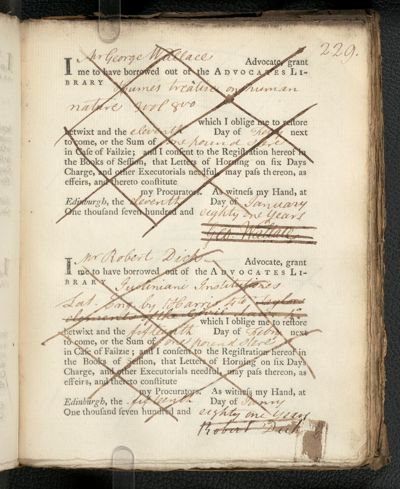 229.
I Mr George Wallace Advocate, grant
me to have borrowed out of the ADVOCATES LI-
BRARY Humes treatise on human
nature vol 8vo
which I oblige me to restore
betwixt and the eleventh Day of Febry next
to come, or the Sum of one pound Sterl
in Case of Failzie; and I consent to the Registration hereof in
the Books of Session, that Letters of Horning on six Days
Charge, and other Executorials needful, may pass thereon, as
effeirs, and thereto constitute
my Procurators. As witness my Hand, at
Edinburgh, the eleventh Day of January
One thousand seven hundred and eighty one Years
Geo. Wallace
I Mr Robert Dick Advocate, grant
me to have borrowed out of the ADVOCATES LI-
BRARY Justiniani Institutiones
Lat. Eng. by Harris 4to
which I oblige me to restore
betwixt and the fifteenth Day of Febry next
to come, or the Sum of one pound Sterl
in Case of Failzie; and I consent to the Registration hereof in
the Books of Session, that Letters of Horning on six Days
Charge, and other Executorials needful, may pass thereon, as
effeirs, and thereto constitute
my Procurators. As witness my Hand, at
Edinburgh, the fifteenth Day of Janry
One thousand seven hundred and eighty one Years
Robert Dick